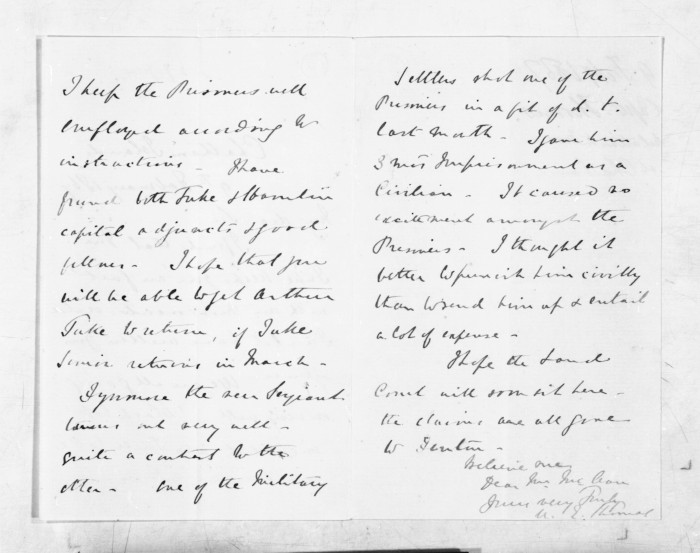 I keep the Prisoners well
employed according to
instructions - I have
found both Tuke & Hamlin
capital adjuncts & good
fellows - I hope that you
will be able to get Arthur
Tuke to return, if Tuke
Senior returns in March -
the new Sergeant
turns out very well -
quite a contrast to the
other - One of the Military
Settlers shot one of the
Prisoners in a fit of d. t.
last month - I gave him
3 mos Imprisonment as a
Civilian - It caused no
excitement amongst the
Prisoners - I thought it
better to punish him civilly
than to send him up & entail
a lot of expense -
I hope the Land
Court will soon sit here -
the claims are all gone
to Fenton -
Believe me
Dear Mr McLean
Yours very Truly
Thomas